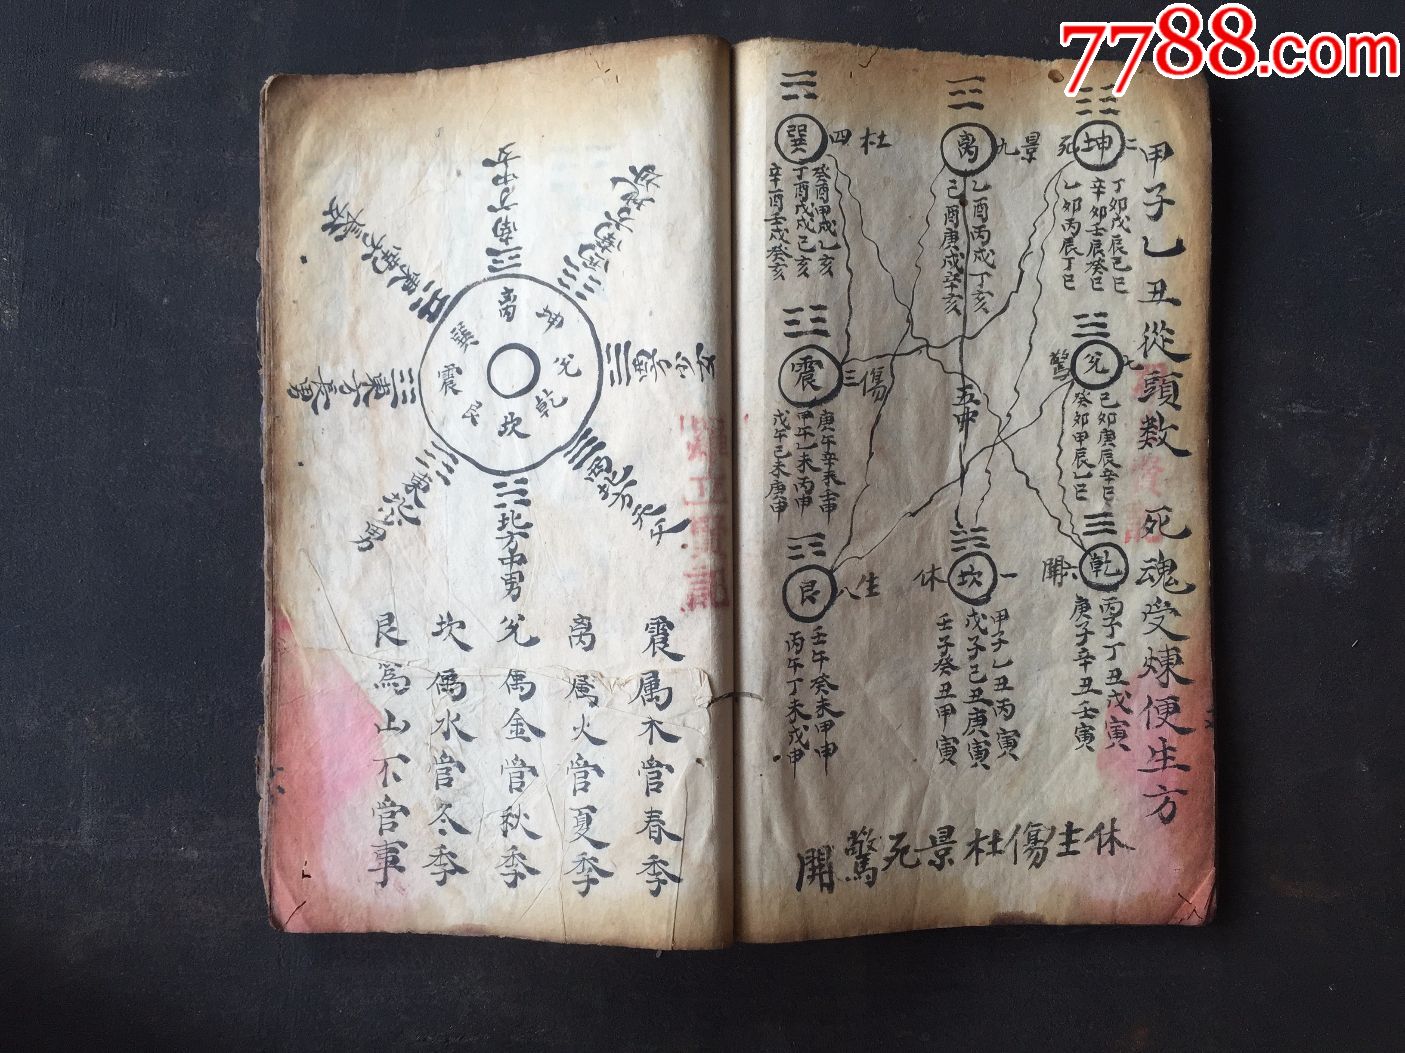 7788.com
甲子乙丑從頭数死魂受煉便生方
坤
二
死
丁卯戊辰己巳
辛卯壬辰癸巳
乙卯丙辰丁巳
離
九
景
乙酉丙戌丁亥
己酉庚戌辛亥
巽
四
杜
癸酉甲戌乙亥
丁酉戊戌己亥
辛酉壬戌癸亥
兌
七
驚
己卯庚辰辛巳
癸卯甲辰乙巳
五中
震
三
傷
庚午辛未壬申
甲午乙未丙申
戊午己未庚申
乾
六
開
丙子丁丑戊寅
庚子辛丑壬寅
坎
一
休
甲子乙丑丙寅
戊子己丑庚寅
壬子癸丑甲寅
艮
八
生
壬午癸未甲申
丙午丁未戊申
休生傷杜景死驚開
离
坤
兌
乾
坎
艮
震
巽
南方中女
西方少女
北方中男
東方長男
震属木管春季
离属火管夏季
兌属金管秋季
坎属水管冬季
艮為山不管事